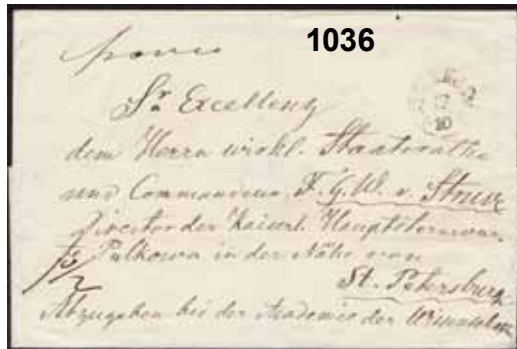 1036
franco
Sr Excellenz
dem Herrn wirkl. Staatsrathe
und Commandeur F. G. W. v. Struve
Director der Kaiserl. Hauptsternwar.
Pulkowa in der Nähe von
St. Petersburg
Abzugeben bei der Academie der Wissensch